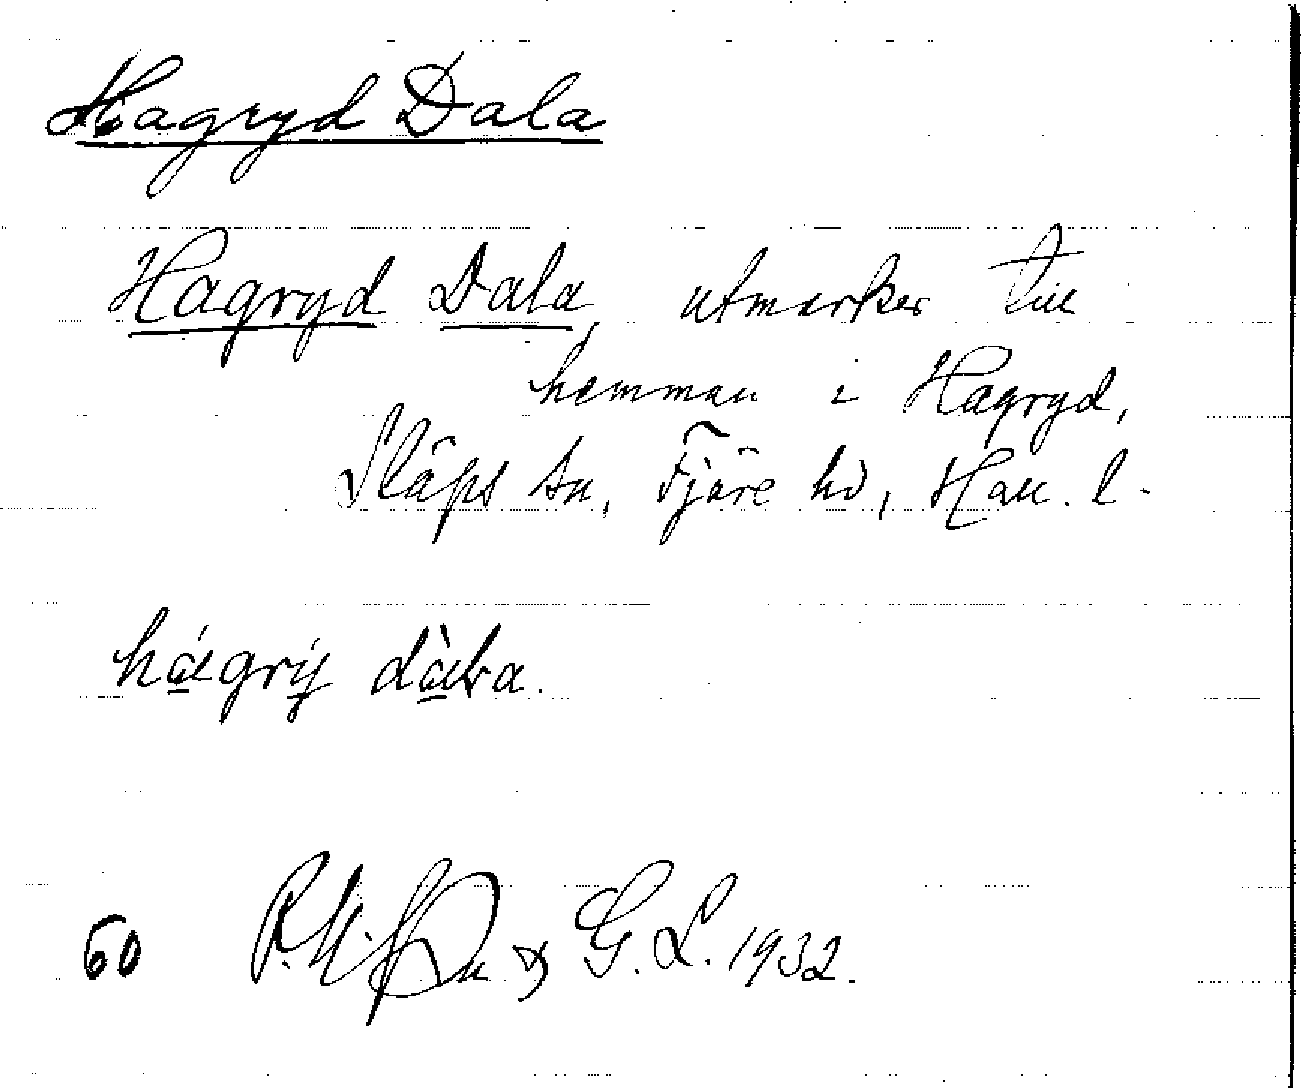 Hagryd Dala
Hagryd Dala, utmarker till
hemman i Hagryd,
Släps sn, Fjäre hd, Hall. l.
hágrý dàla.
60 G. L. 1932.